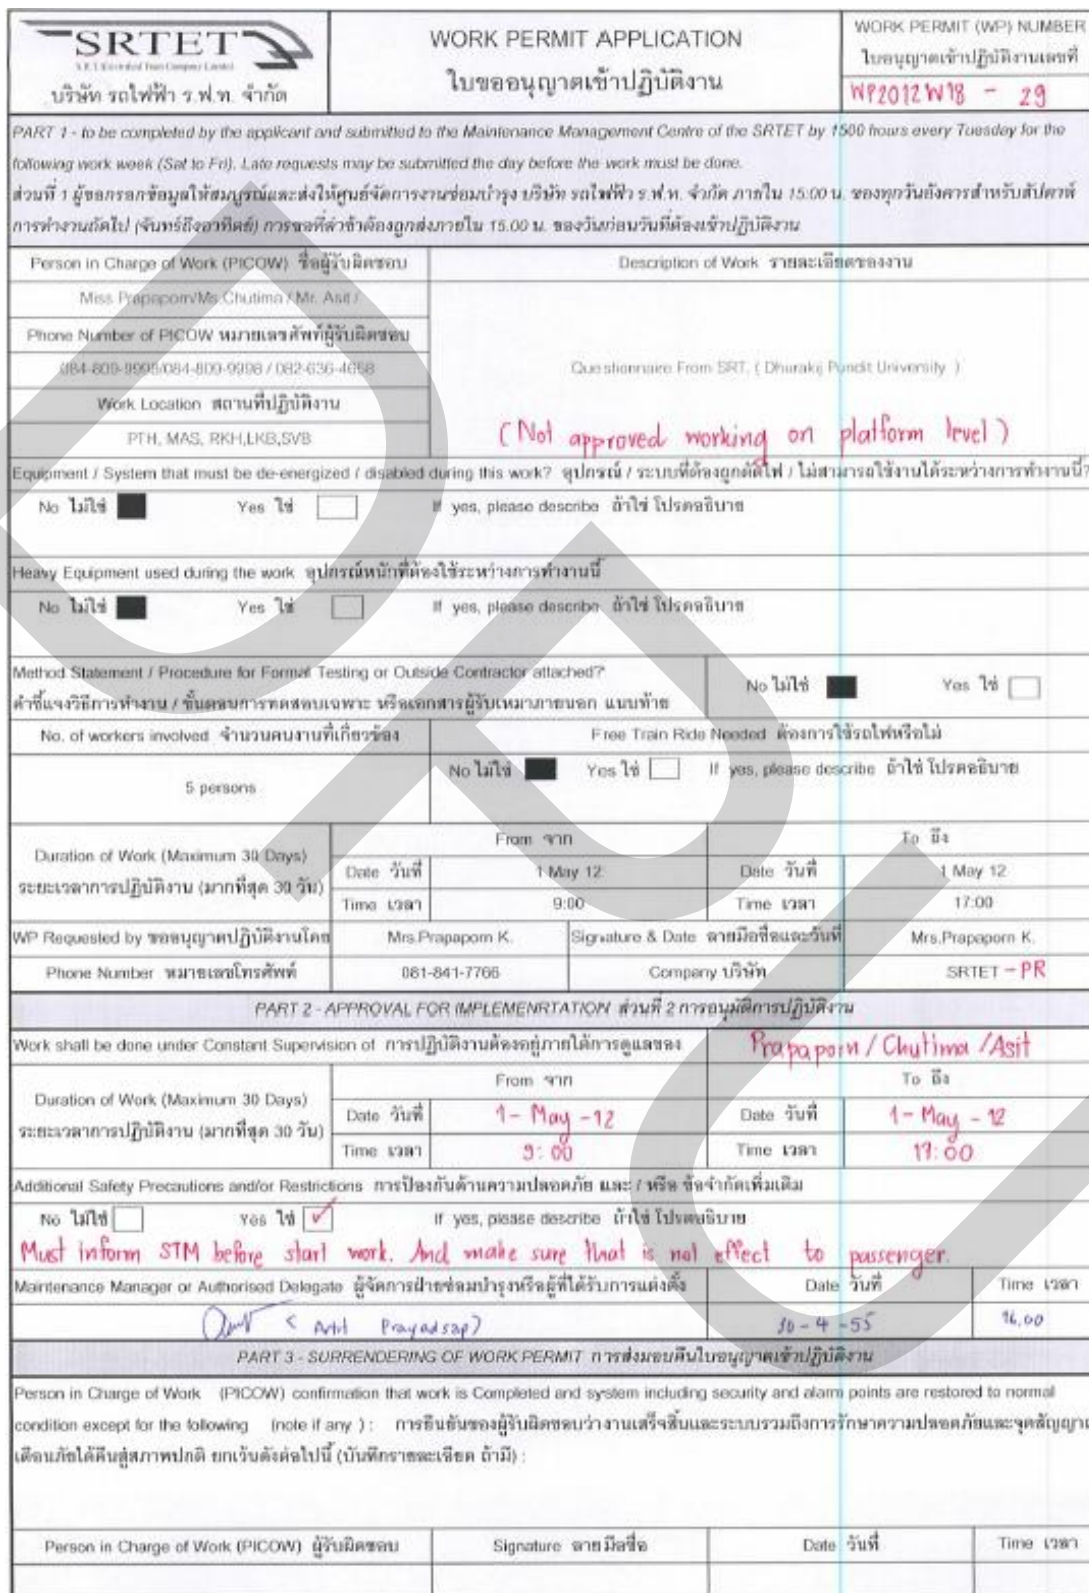 SRTET
บริษัท รถไฟฟ้า ร.ฟ.ท. จำกัด
WORK PERMIT APPLICATION
ใบขออนุญาตเข้าปฏิบัติงาน
WORK PERMIT (WP) NUMBER
ใบอนุญาตเข้าปฏิบัติงานเลขที่
WP2012W18 - 29
PART 1 - to be completed by the applicant and submitted to the Maintenance Management Centre of the SRTET by 1500 hours every Tuesday for the
following work week (Sat to Fri). Late requests may be submitted the day before the work must be done.
ส่วนที่ 1 ผู้ขอกรอกข้อมูลให้สมบูรณ์และส่งให้ศูนย์จัดการงานซ่อมบำรุง บริษัท รถไฟฟ้า ร.ฟ.ท. จำกัด ภายใน 15.00 น. ของทุกวันอังคารสำหรับสัปดาห์
การทำงานถัดไป (จันทร์ถึงอาทิตย์) การขอที่ล่าช้าต้องถูกส่งภายใน 15.00 น. ของวันก่อนวันที่ต้องเข้าปฏิบัติงาน
Person in Charge of Work (PICOW) ชื่อผู้รับผิดชอบ
Description of Work รายละเอียดของงาน
Miss Prapaporn/Ms.Chutima / Mr. Asit /
Phone Number of PICOW หมายเลขศัพท์ผู้รับผิดชอบ
084-809-9998/084-809-9998 / 082-636-4658
Questionnaire From SRT, ( Dhurakij Pundit University )
Work Location สถานที่ปฏิบัติงาน
PTH, MAS, RKH,LKB,SVB
(Not approved working on platform level)
Equipment / System that must be de-energized / disabled during this work? อุปกรณ์ / ระบบที่ต้องถูกตัดไฟ / ไม่สามารถใช้งานได้ระหว่างการทำงานนี้?
No ไม่ใช่ Yes ใช่ If yes, please describe ถ้าใช่ โปรดอธิบาย
Heavy Equipment used during the work อุปกรณ์หนักที่ต้องใช้ระหว่างการทำงานนี้
No ไม่ใช่ Yes ใช่ If yes, please describe ถ้าใช่ โปรดอธิบาย
Method Statement / Procedure for Formal Testing or Outside Contractor attached?
คำชี้แจงวิธีการทำงาน / ขั้นตอนการทดสอบเฉพาะ หรือเอกสารผู้รับเหมาภายนอก แนบท้าย
No ไม่ใช่ Yes ใช่
No. of workers involved จำนวนคนงานที่เกี่ยวข้อง
Free Train Ride Needed ต้องการใช้รถไฟหรือไม่
5 persons
No ไม่ใช่ Yes ใช่ If yes, please describe ถ้าใช่ โปรดอธิบาย
Duration of Work (Maximum 30 Days)
ระยะเวลาการปฏิบัติงาน (มากที่สุด 30 วัน)
From จาก To ถึง
Date วันที่ 1 May 12 Date วันที่ 1 May 12
Time เวลา 9:00 Time เวลา 17:00
WP Requested by ขออนุญาตปฏิบัติงานโดย Mrs.Prapaporn K. Signature & Date ลายมือชื่อและวันที่ Mrs.Prapaporn K.
Phone Number หมายเลขโทรศัพท์ 081-841-7766 Company บริษัท SRTET - PR
PART 2 - APPROVAL FOR IMPLEMENRTATION ส่วนที่ 2 การอนุมัติการปฏิบัติงาน
Work shall be done under Constant Supervision of การปฏิบัติงานต้องอยู่ภายใต้การดูแลของ Prapaporn / Chutima / Asit
Duration of Work (Maximum 30 Days)
ระยะเวลาการปฏิบัติงาน (มากที่สุด 30 วัน)
From จาก To ถึง
Date วันที่ 1 - May - 12 Date วันที่ 1 - May - 12
Time เวลา 9:00 Time เวลา 17:00
Additional Safety Precautions and/or Restrictions การป้องกันด้านความปลอดภัย และ / หรือ ข้อจำกัดเพิ่มเติม
No ไม่ใช่ Yes ใช่ ✓ If yes, please describe ถ้าใช่ โปรดอธิบาย
Must inform STM before start work. And make sure that is not effect to passenger.
Maintenance Manager or Authorised Delegate ผู้จัดการฝ่ายซ่อมบำรุงหรือผู้ที่ได้รับการแต่งตั้ง Date วันที่ Time เวลา
( Artit Prayadsap ) 30 - 4 - 55 16.00
PART 3 - SURRENDERING OF WORK PERMIT การส่งมอบคืนใบอนุญาตเข้าปฏิบัติงาน
Person in Charge of Work (PICOW) confirmation that work is Completed and system including security and alarm points are restored to normal
condition except for the following (note if any ) : การยืนยันของผู้รับผิดชอบว่างานเสร็จสิ้นและระบบรวมถึงการรักษาความปลอดภัยและจุดสัญญาณ
เตือนภัยได้คืนสู่สภาพปกติ ยกเว้นดังต่อไปนี้ (บันทึกรายละเอียด ถ้ามี) :
Person in Charge of Work (PICOW) ผู้รับผิดชอบ Signature ลายมือชื่อ Date วันที่ Time เวลา